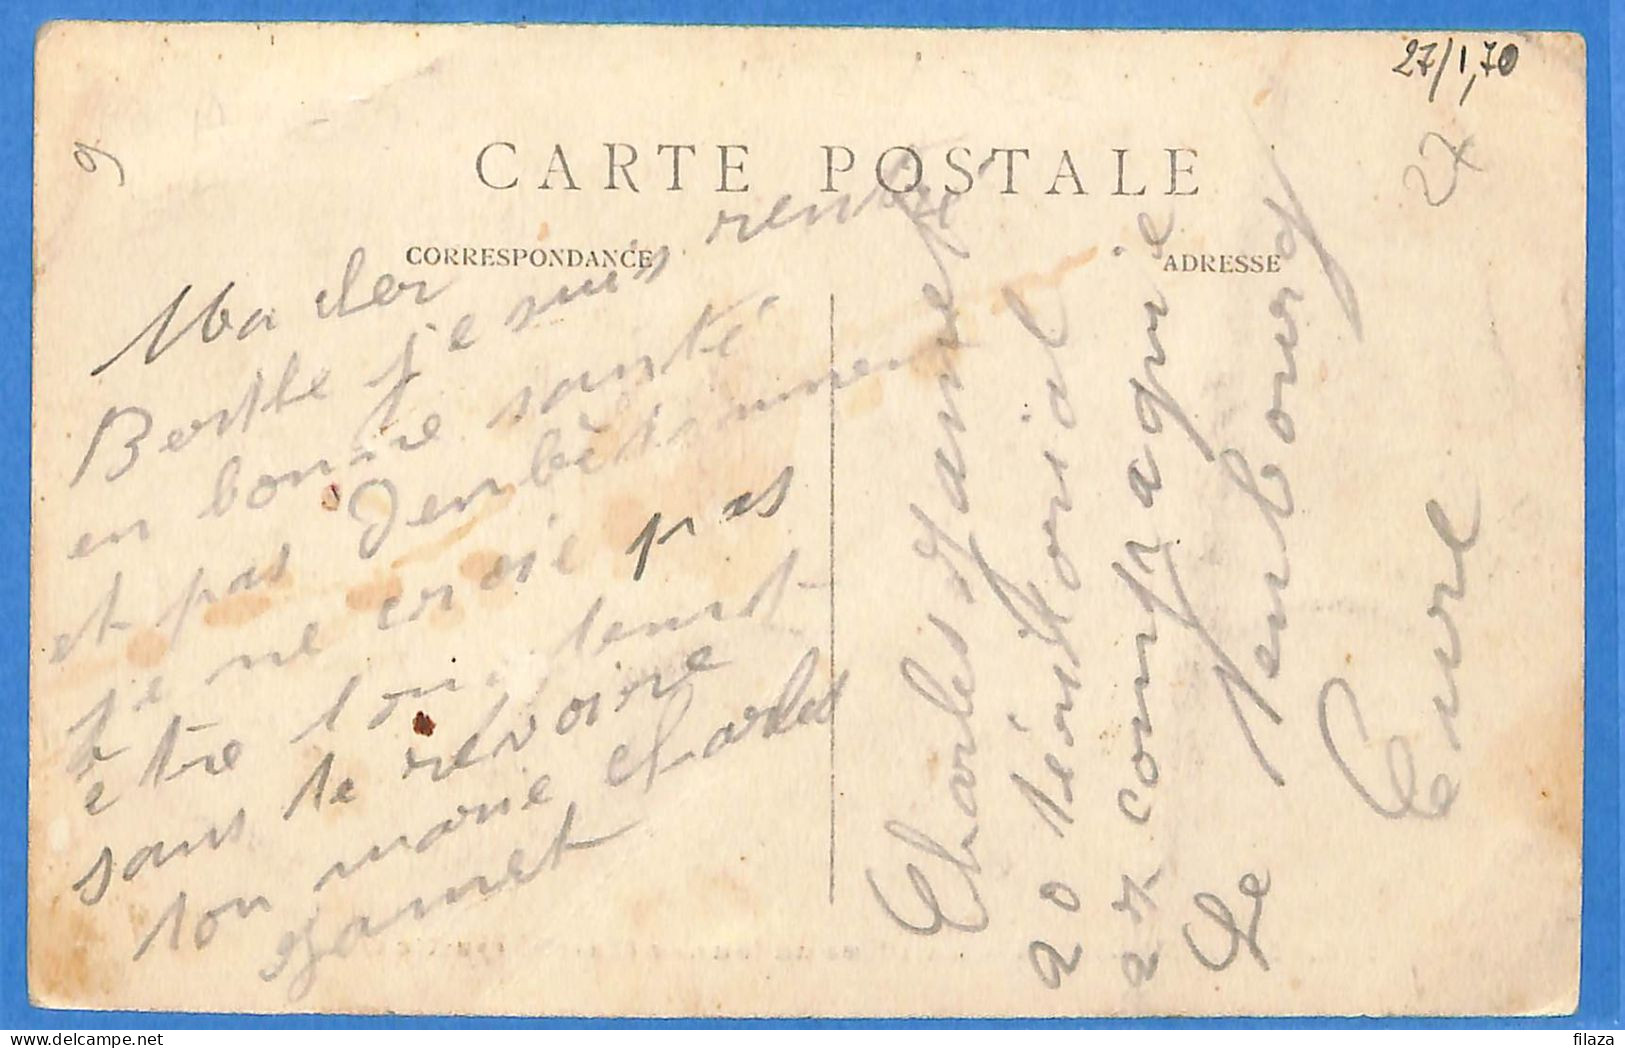 27/1,70
27
9
CARTE POSTALE
CORRESPONDANCE
ADRESSE
Ma cher
Berthe je suis rentré
en bonne santé
et pas d'enbêtisement
je ne croie pas
être lontenst
sans te revoire
ton marie Charles
Jamet
Charles Jamet
20 téritorial
27 compagnie
Le Neubourg
Eure
filaza